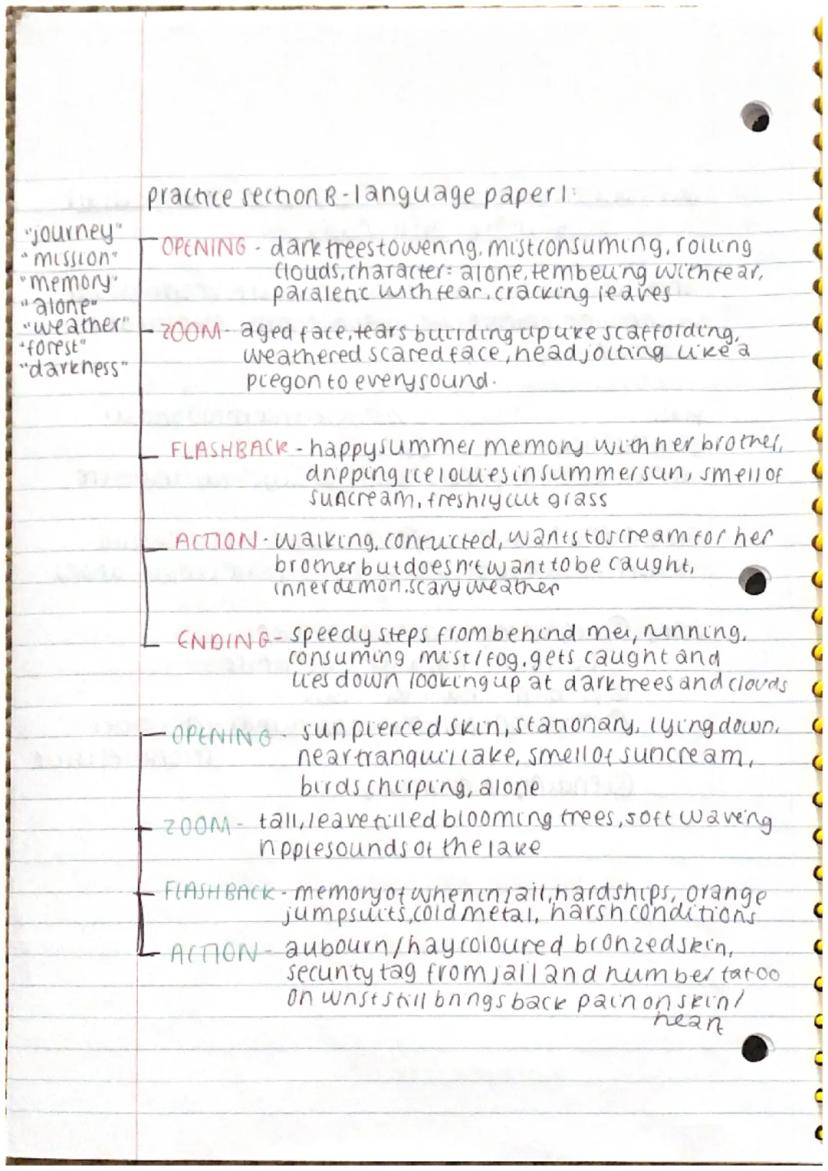 practice section B - language paper 1:
"journey"
"mission"
"memory"
"alone"
"weather"
"forest"
"darkness"
OPENING - dark trees towering, mist consuming, rolling
clouds, character: alone, tembeling with fear,
paraletic with fear, cracking leaves
ZOOM - aged face, tears building up like scaffolding,
weathered scared face, head jolting like a
piegon to every sound.
FLASHBACK - happy summer memory with her brother,
dripping ice lollies in summer sun, smell of
suncream, freshly cut grass
ACTION - walking, conflicted, wants to scream for her
brother but doesn't want to be caught,
inner demon, scary weather
ENDING - speedy steps from behind me, running,
consuming mist/fog, gets caught and
lies down looking up at dark trees and clouds
OPENING - sun pierced skin, stationary, lying down,
near tranquil lake, smell of suncream,
birds chirping, alone
ZOOM - tall, leave filled blooming trees, soft waving
ripple sounds of the lake
FLASHBACK - memory of when in jail, hardships, orange
jumpsuits, cold metal, harsh conditions
ACTION - aubourn/hay coloured bronzed skin,
security tag from jail and number tatoo
on wrist still brings back pain on skin/
heart